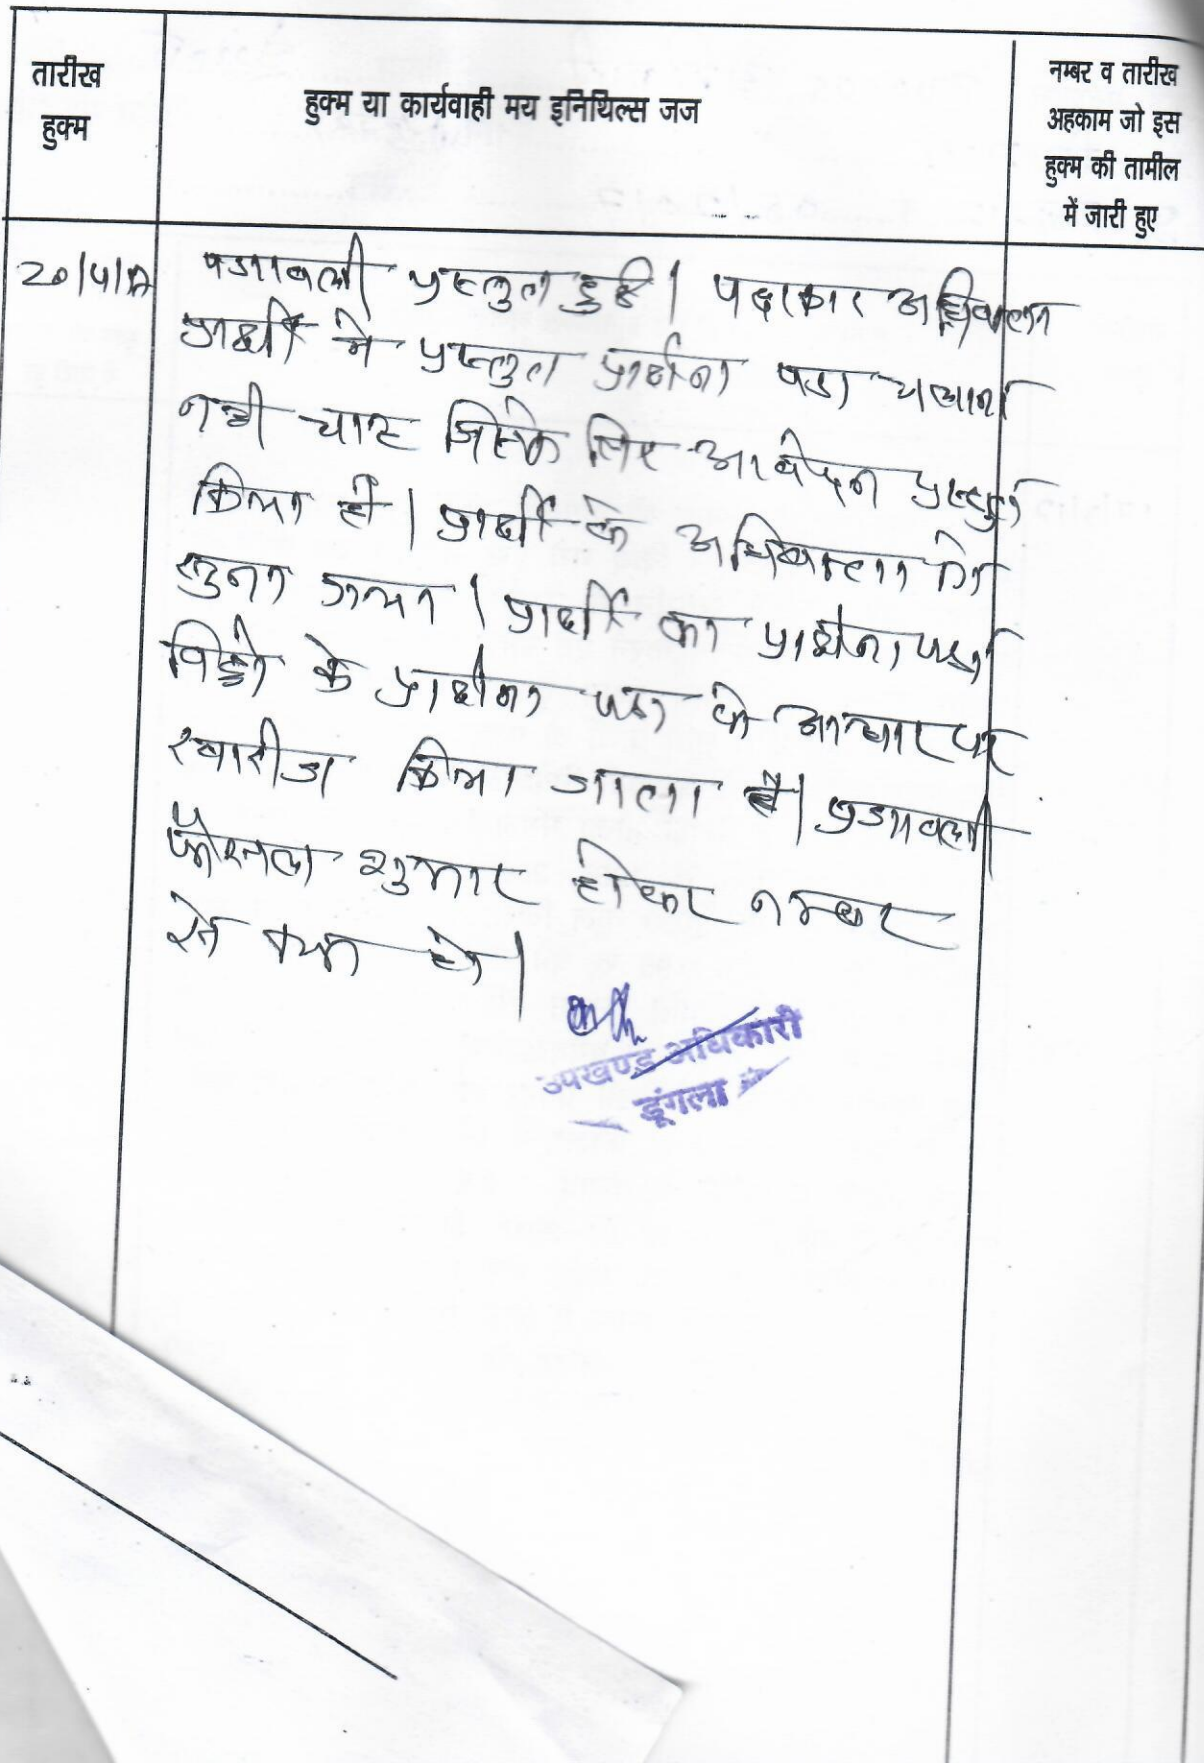 तारीख
हुक्म
हुक्म या कार्यवाही मय इनिथिल्स जज
नम्बर व तारीख
अहकाम जो इस
हुक्म की तामील
में जारी हुए
पत्रावली प्रस्तुत हुई। पक्षकार अधिवक्ता
प्रार्थी ने प्रस्तुत प्रार्थना पत्र चलाना
नही चाह जिसके लिए आवेदन प्रस्तुत
किया है। प्रार्थी के अधिवक्ता को
सुना गया। प्रार्थी का प्रार्थना पत्र
विड्रो के प्रार्थना पत्र के आधार पर
खारीज किया जाता है। पत्रावली
फैसला शुमार होकर नम्बर
से कम हो।
उपखण्ड अधिकारी
डूंगला